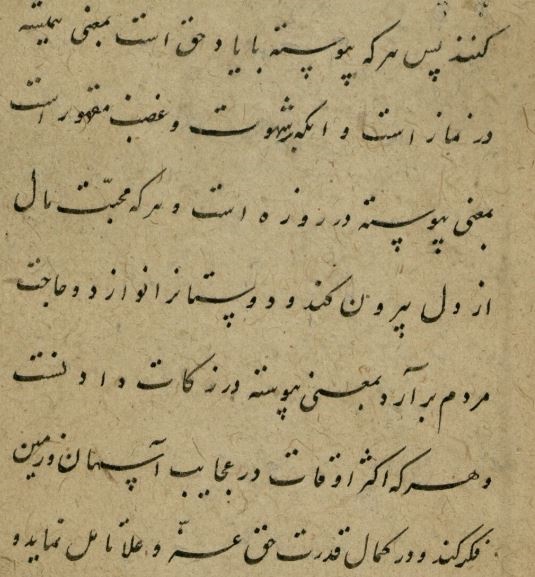 کنند پس هر که پیوسته با یاد حق است بمعنی همیشه
در نماز است و انکه بر شهوت و غضب مقهور است
بمعنی پیوسته در روزه است و هر که محبّت مال
از دل بیرون کند و دوستانرا نوازد و حاجت
مردم بر آرد بمعنی پیوسته در زکات دادنست
و هر که اکثر اوقات در عجایب آسمان و زمین
فکر کند و در کمال قدرت حق عزّ و علا تامل نماید و